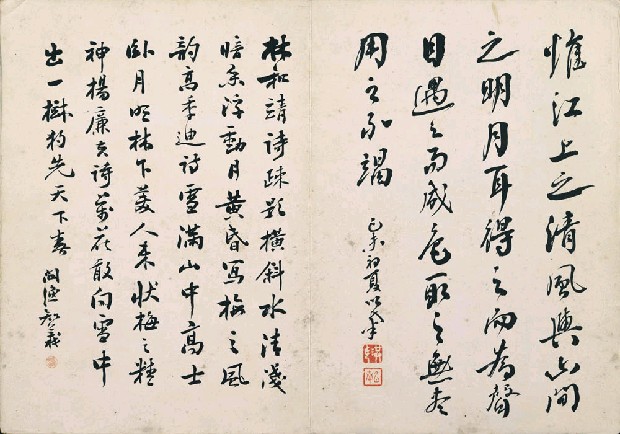 惟江上之清風與山間
之明月耳得之而為聲
目遇之而成色取之無盡
用之不竭
未初夏
林和靖詩疎影橫斜水清淺
暗香浮動月黃昏寫梅之風
韵高季迪詩雪滿山中高士
臥月明林下美人来狀梅之精
神楊廉夫詩萬花敢向雪中
出一樹獨先天下春